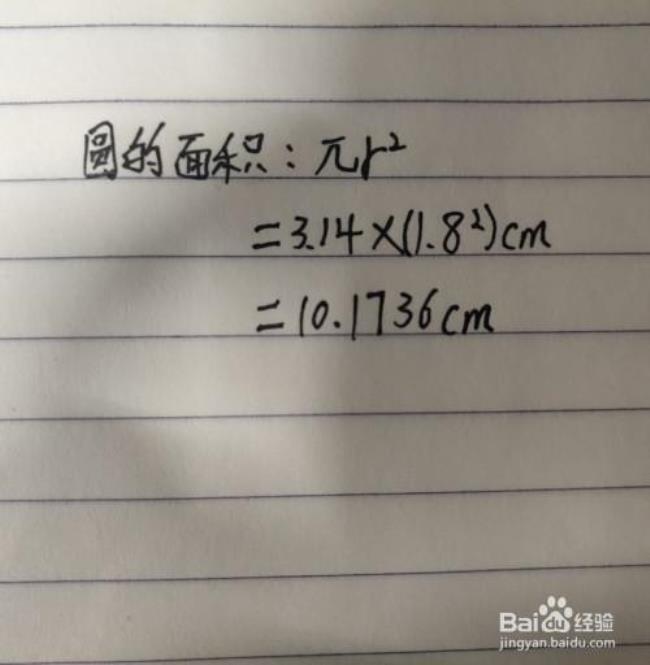 圆的面积：πr²
=3.14×(1.8²)cm
=10.1736cm
Baidu经验
jingyan.baidu.com